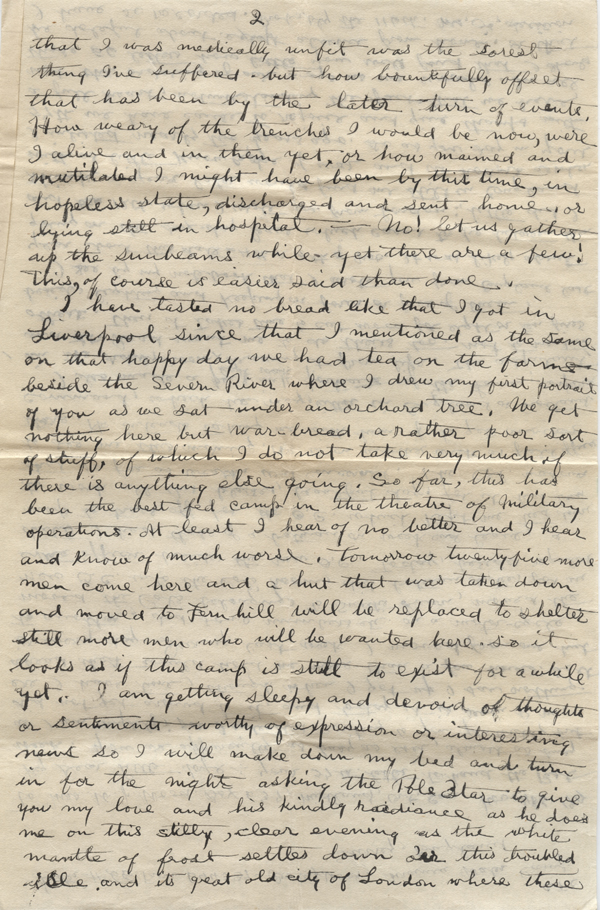 2
that I was medically unfit was the sorest
thing I've suffered - but how bountifully offset
that has been by the later turn of events.
How weary of the trenches I would be now, were
I alive and in them yet, or how maimed and
mutilated I might have been by this time, in
hopeless state, discharged and sent home, or
lying still in hospital. — No! let us gather
up the sunbeams while yet there are a few!
This, of course is easier said than done.
I have tasted no bread like that I got in
Liverpool since that I mentioned as the same
on that happy day we had tea on the farm
beside the Severn River where I drew my first portrait
of you as we sat under an orchard tree. We get
nothing here but war-bread, a rather poor sort
of stuff, of which I do not take very much if
there is anything else going. So far, this has
been the best fed camp in the theatre of military
operations. At least I hear of no better and I hear
and know of much worse. Tomorrow twenty-five more
men come here and a hut that was taken down
and moved to Fernhill will be replaced to shelter
still more men who will be wanted here. So it
looks as if this camp is still to exist for awhile
yet.. I am getting sleepy and devoid of thoughts
or sentiments worthy of expression or interesting
news so I will make down my bed and turn
in for the night asking the Pole Star to give
you my love and his kindly radiance as he does
me on this stilly, clear evening as the white
mantle of frost settles down on this troubled
isle and its great old city of London where these